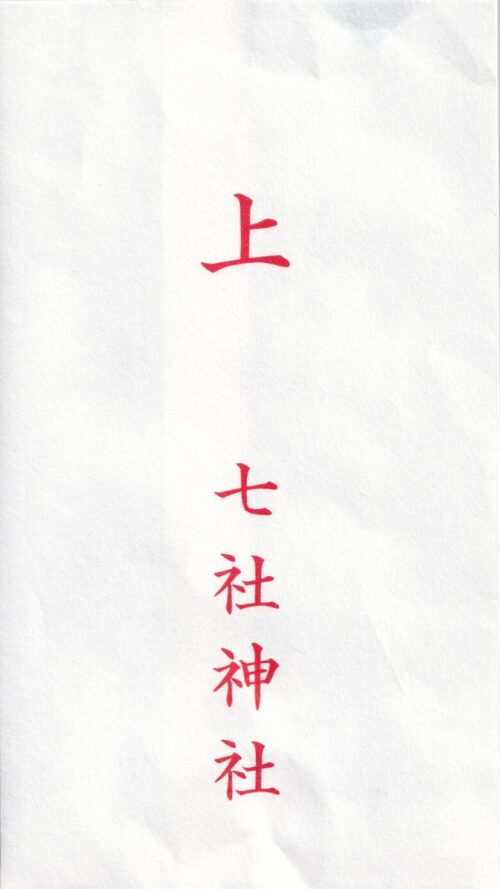 上
七社神社